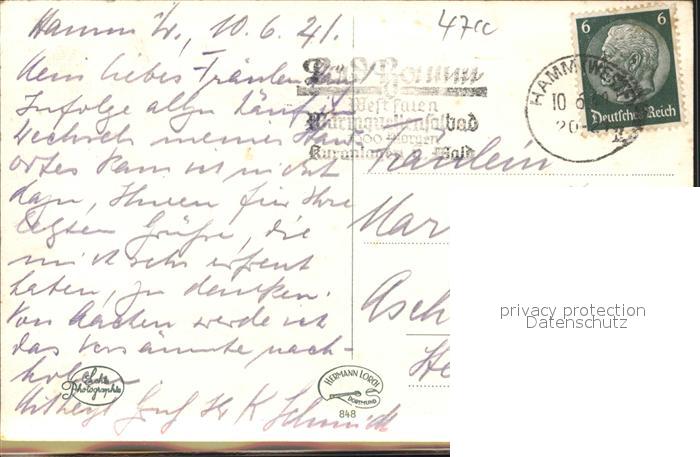 Hamm i/W., 10.6.41.
47cc
Mein liebes Fräulein
Infolge allzu häufigen
Wechsels meines
ortes kam ich nicht
dazu, Ihnen für Ihre
letzten Grüße, die
mich sehr erfreut
haben, zu danken.
Von Aachen werde ich
das Versäumte nach-
holen.
Mit herzl. Gruß Ihr K. Schmidt
Echte
Photographie
HERMANN LORCH
DORTMUND
848
Bad Hamm
Westfalen
Warmquellensolbad
Morgen
Kuranlagen Wald
HAMM (WESTF)
10 6
20
6 6
Deutsches Reich
Fräulein
Mar
Asch
He
privacy protection
Datenschutz